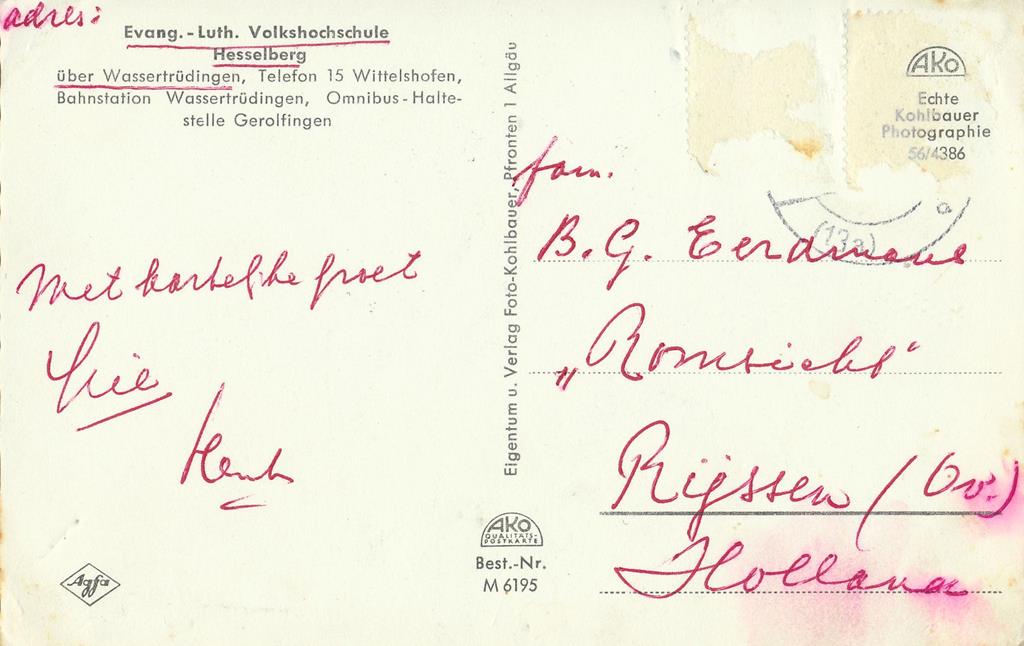 adres:
Evang.-Luth. Volkshochschule
Hesselberg
über Wassertrüdingen, Telefon 15 Wittelshofen,
Bahnstation Wassertrüdingen, Omnibus-Halte-
stelle Gerolfingen
Met hartelijke groet
Henk
Eigentum u. Verlag Foto-Kohlbauer, Pfronten 1 Allgäu
AKO
QUALITÄTS-
POSTKARTE
Best.-Nr.
M 6195
Agfa
AKO
Echte
Kohlbauer
Photographie
56/4386
(13a)
a
fam.
B. G. Eerdmans
Rijssen (Ov.)
Holland